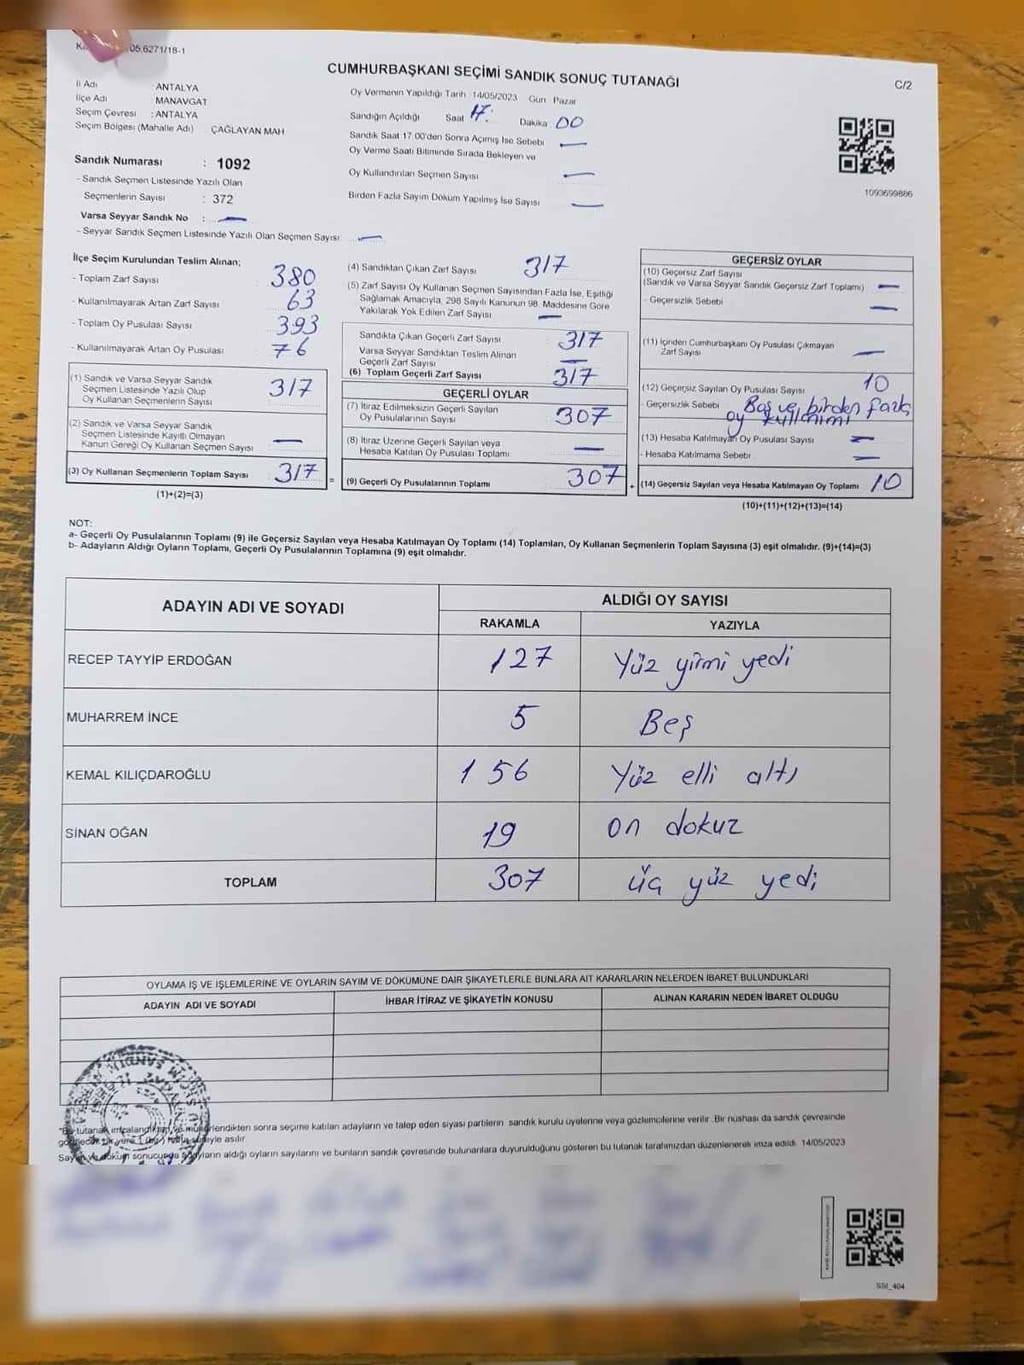 05.6271/18-1
CUMHURBAŞKANI SEÇİMİ SANDIK SONUÇ TUTANAĞI
C/2
İl Adı ANTALYA
İlçe Adı MANAVGAT
Seçim Çevresi : ANTALYA
Seçim Bölgesi (Mahalle Adı) : ÇAĞLAYAN MAH
Sandık Numarası : 1092
- Sandık Seçmen Listesinde Yazılı Olan
Seçmenlerin Sayısı : 372
Varsa Seyyar Sandık No : —
- Seyyar Sandık Seçmen Listesinde Yazılı Olan Seçmen Sayısı —
Oy Vermenin Yapıldığı Tarih 14/05/2023 Gün Pazar
Sandığın Açıldığı Saat 17: Dakika 00
Sandık Saat 17.00'den Sonra Açımış İse Sebebi —
Oy Verme Saati Bitiminde Sırada Bekleyen ve
Oy Kullandırılan Seçmen Sayısı —
Birden Fazla Sayım Döküm Yapılmış İse Sayısı —
1093699886
İlçe Seçim Kurulundan Teslim Alınan;
- Toplam Zarf Sayısı 380
- Kullanılmayarak Artan Zarf Sayısı 63
- Toplam Oy Pusulası Sayısı 393
- Kullanılmayarak Artan Oy Pusulası 76
(1) Sandık ve Varsa Seyyar Sandık
Seçmen Listesinde Yazılı Olup
Oy Kullanan Seçmenlerin Sayısı 317
(2) Sandık ve Varsa Seyyar Sandık
Seçmen Listesinde Kayıtlı Olmayan
Kanun Gereği Oy Kullanan Seçmen Sayısı —
(3) Oy Kullanan Seçmenlerin Toplam Sayısı 317
(1)+(2)=(3)
(4) Sandıktan Çıkan Zarf Sayısı 317
(5) Zarf Sayısı Oy Kullanan Seçmen Sayısından Fazla İse, Eşitliği
Sağlamak Amacıyla, 298 Sayılı Kanunun 98. Maddesine Göre
Yakılarak Yok Edilen Zarf Sayısı —
Sandıkta Çıkan Geçerli Zarf Sayısı 317
Varsa Seyyar Sandıktan Teslim Alınan
Geçerli Zarf Sayısı —
(6) Toplam Geçerli Zarf Sayısı 317
GEÇERLİ OYLAR
(7) İtiraz Edilmeksizin Geçerli Sayılan
Oy Pusulalarının Sayısı 307
(8) İtiraz Üzerine Geçerli Sayılan veya
Hesaba Katılan Oy Pusulası Toplamı —
= (9) Geçerli Oy Pusulalarının Toplamı 307
GEÇERSİZ OYLAR
(10) Geçersiz Zarf Sayısı
(Sandık ve Varsa Seyyar Sandık Geçersiz Zarf Toplamı) —
- Geçersizlik Sebebi —
(11) İçinden Cumhurbaşkanı Oy Pusulası Çıkmayan
Zarf Sayısı —
(12) Geçersiz Sayılan Oy Pusulası Sayısı 10
- Geçersizlik Sebebi Boş ve birden fazla
oy kullanımı
(13) Hesaba Katılmayan Oy Pusulası Sayısı —
- Hesaba Katılmama Sebebi —
+ (14) Geçersiz Sayılan veya Hesaba Katılmayan Oy Toplamı 10
(10)+(11)+(12)+(13)=(14)
NOT:
a- Geçerli Oy Pusulalarının Toplamı (9) ile Geçersiz Sayılan veya Hesaba Katılmayan Oy Toplamı (14) Toplamları, Oy Kullanan Seçmenlerin Toplam Sayısına (3) eşit olmalıdır. (9)+(14)=(3)
b- Adayların Aldığı Oyların Toplamı, Geçerli Oy Pusulalarının Toplamına (9) eşit olmalıdır.
ADAYIN ADI VE SOYADI
ALDIĞI OY SAYISI
RAKAMLA YAZIYLA
RECEP TAYYİP ERDOĞAN 127 Yüz yirmi yedi
MUHARREM İNCE 5 Beş
KEMAL KILIÇDAROĞLU 156 Yüz elli altı
SİNAN OĞAN 19 on dokuz
TOPLAM 307 üç yüz yedi
OYLAMA İŞ VE İŞLEMLERİNE VE OYLARIN SAYIM VE DÖKÜMÜNE DAİR ŞİKAYETLERLE BUNLARA AİT KARARLARIN NELERDEN İBARET BULUNDUKLARI
ADAYIN ADI VE SOYADI İHBAR İTİRAZ VE ŞİKAYETİN KONUSU ALINAN KARARIN NEDEN İBARET OLDUĞU
sonra seçime katılan adayların ve talep eden siyasi partilerin sandık kurulu üyelerine veya gözlemcilerine verilir. Bir nüshası da sandık çevresinde
asılır.
aldığı oyların sayılarını ve bunların sandık çevresinde bulunanlara duyurulduğunu gösteren bu tutanak tarafımızdan düzenlenerek imza edildi. 14/05/2023